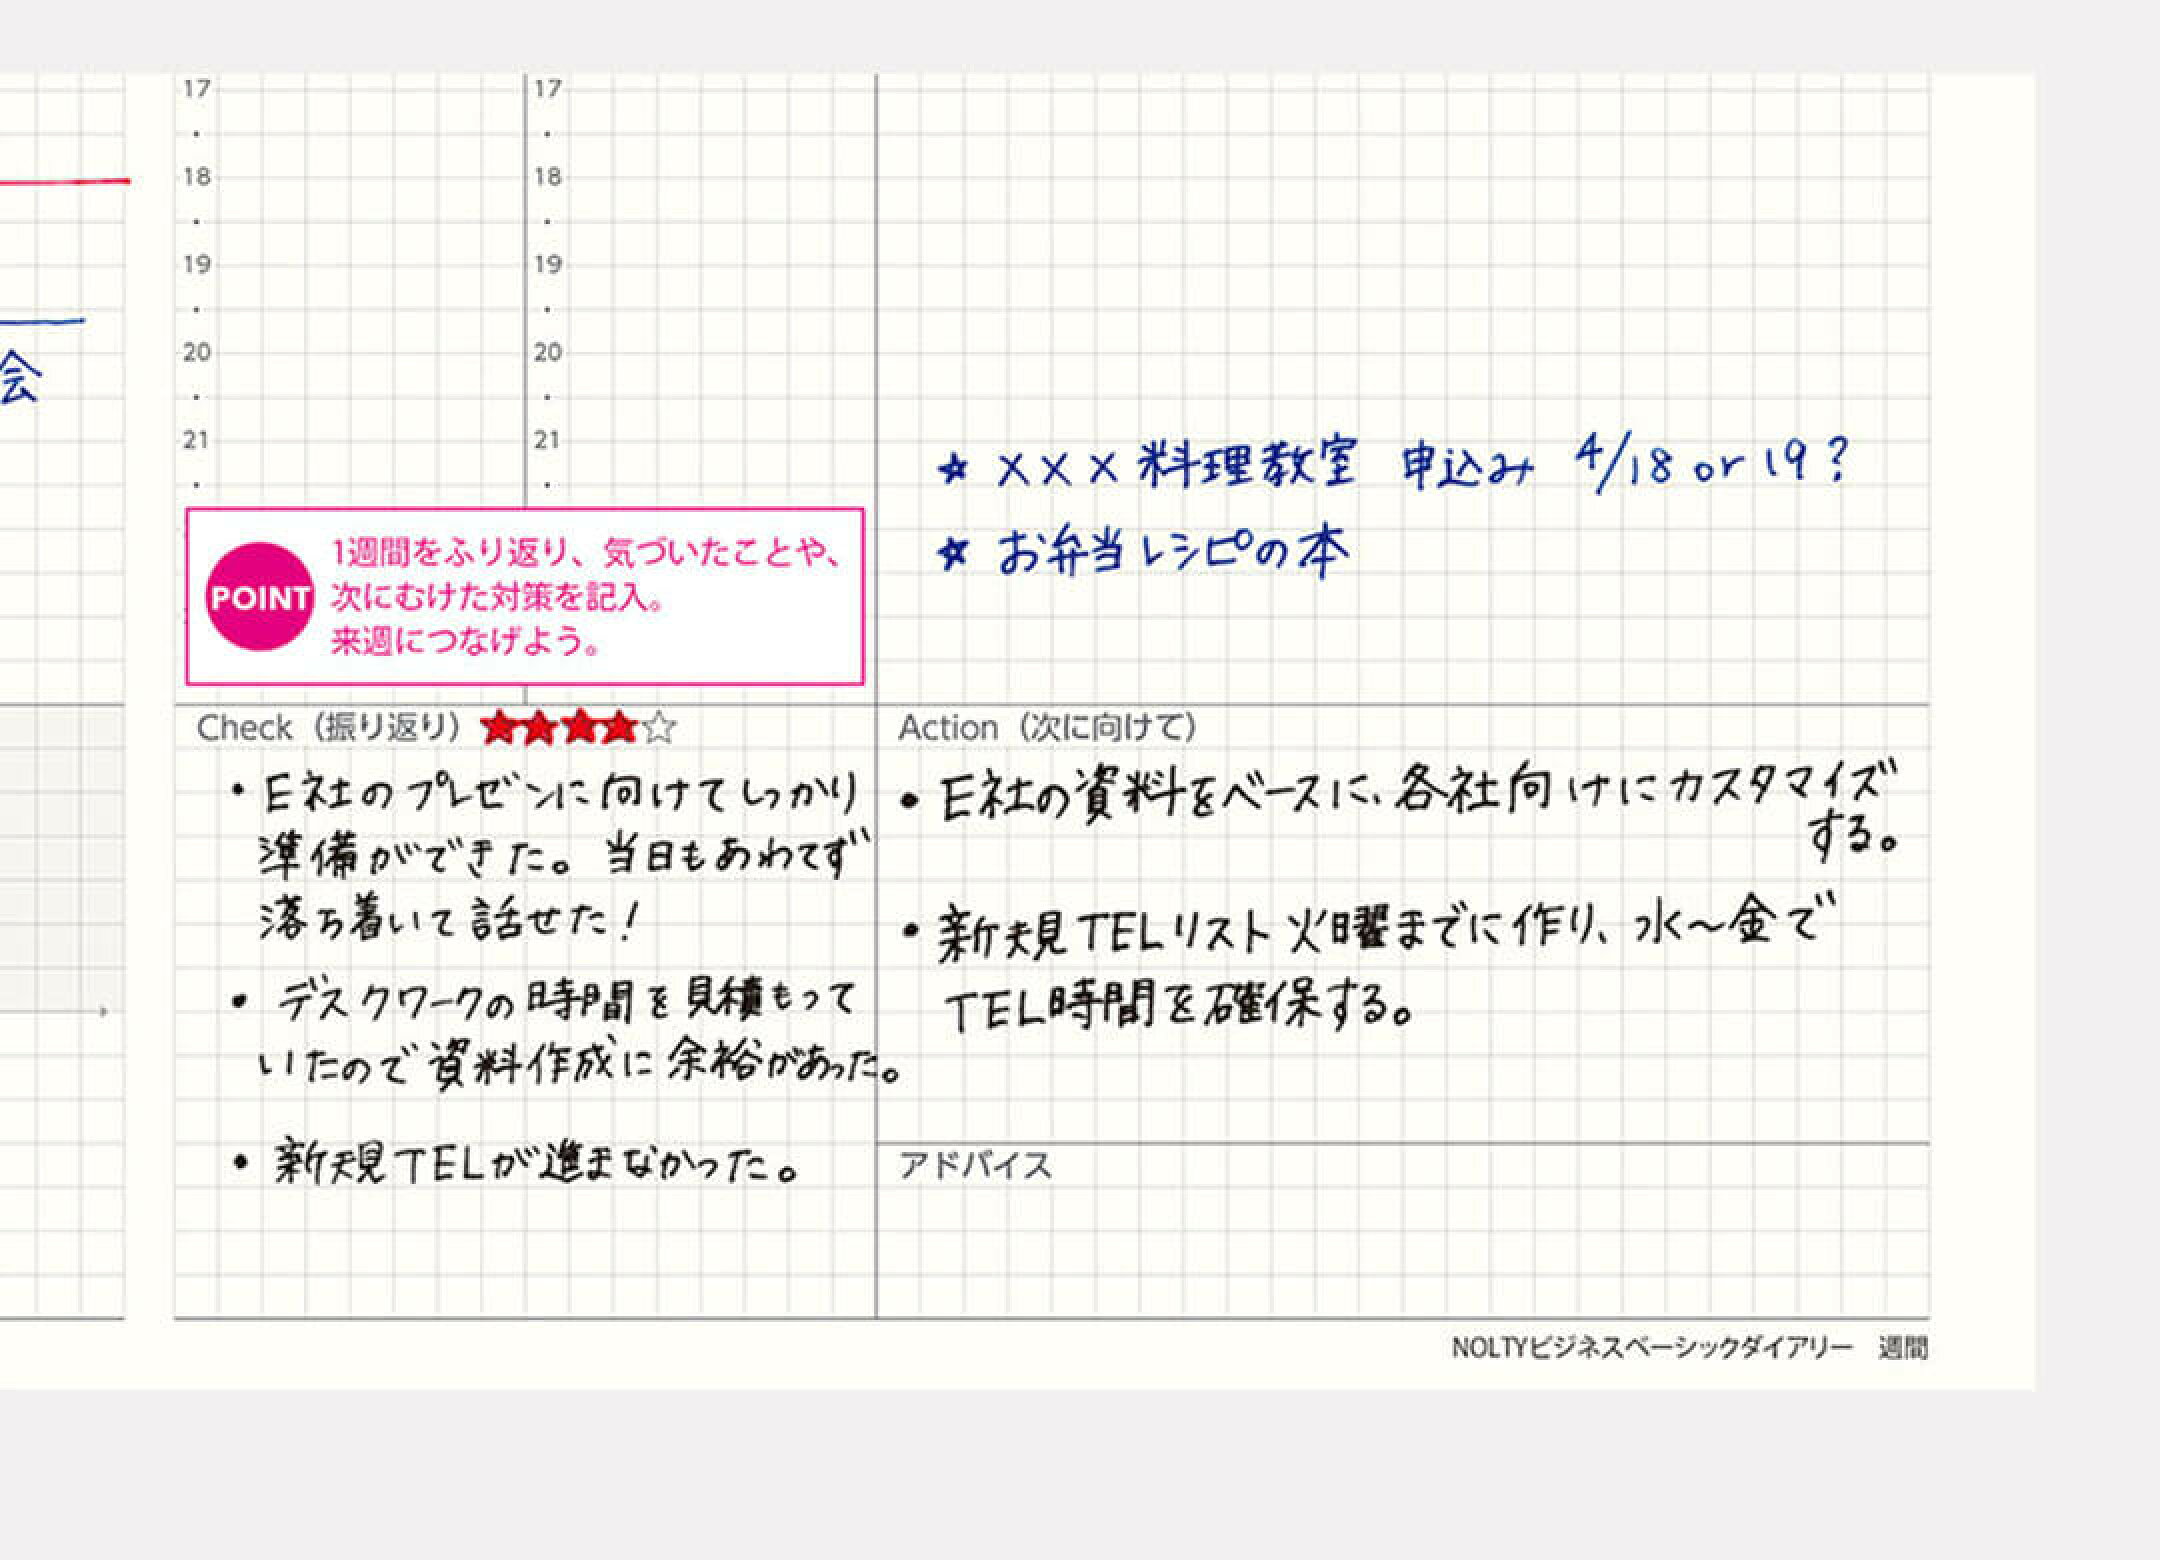 17
18
19
20
21
17
18
19
20
21
会
★ ××× 料理教室 申込み 4/18 or 19?
★ お弁当レシピの本
POINT
1週間をふり返り、気づいたことや、
次にむけた対策を記入。
来週につなげよう。
Check（振り返り）★★★★☆
・E社のプレゼンに向けてしっかり
準備ができた。当日もあわてず
落ち着いて話せた!
・デスクワークの時間を見積もって
いたので資料作成に余裕があった。
・新規TELが進まなかった。
Action（次に向けて）
・E社の資料をベースに、各社向けにカスタマイズ
する。
・新規TELリスト火曜までに作り、水～金で
TEL時間を確保する。
アドバイス
NOLTYビジネスベーシックダイアリー 週間